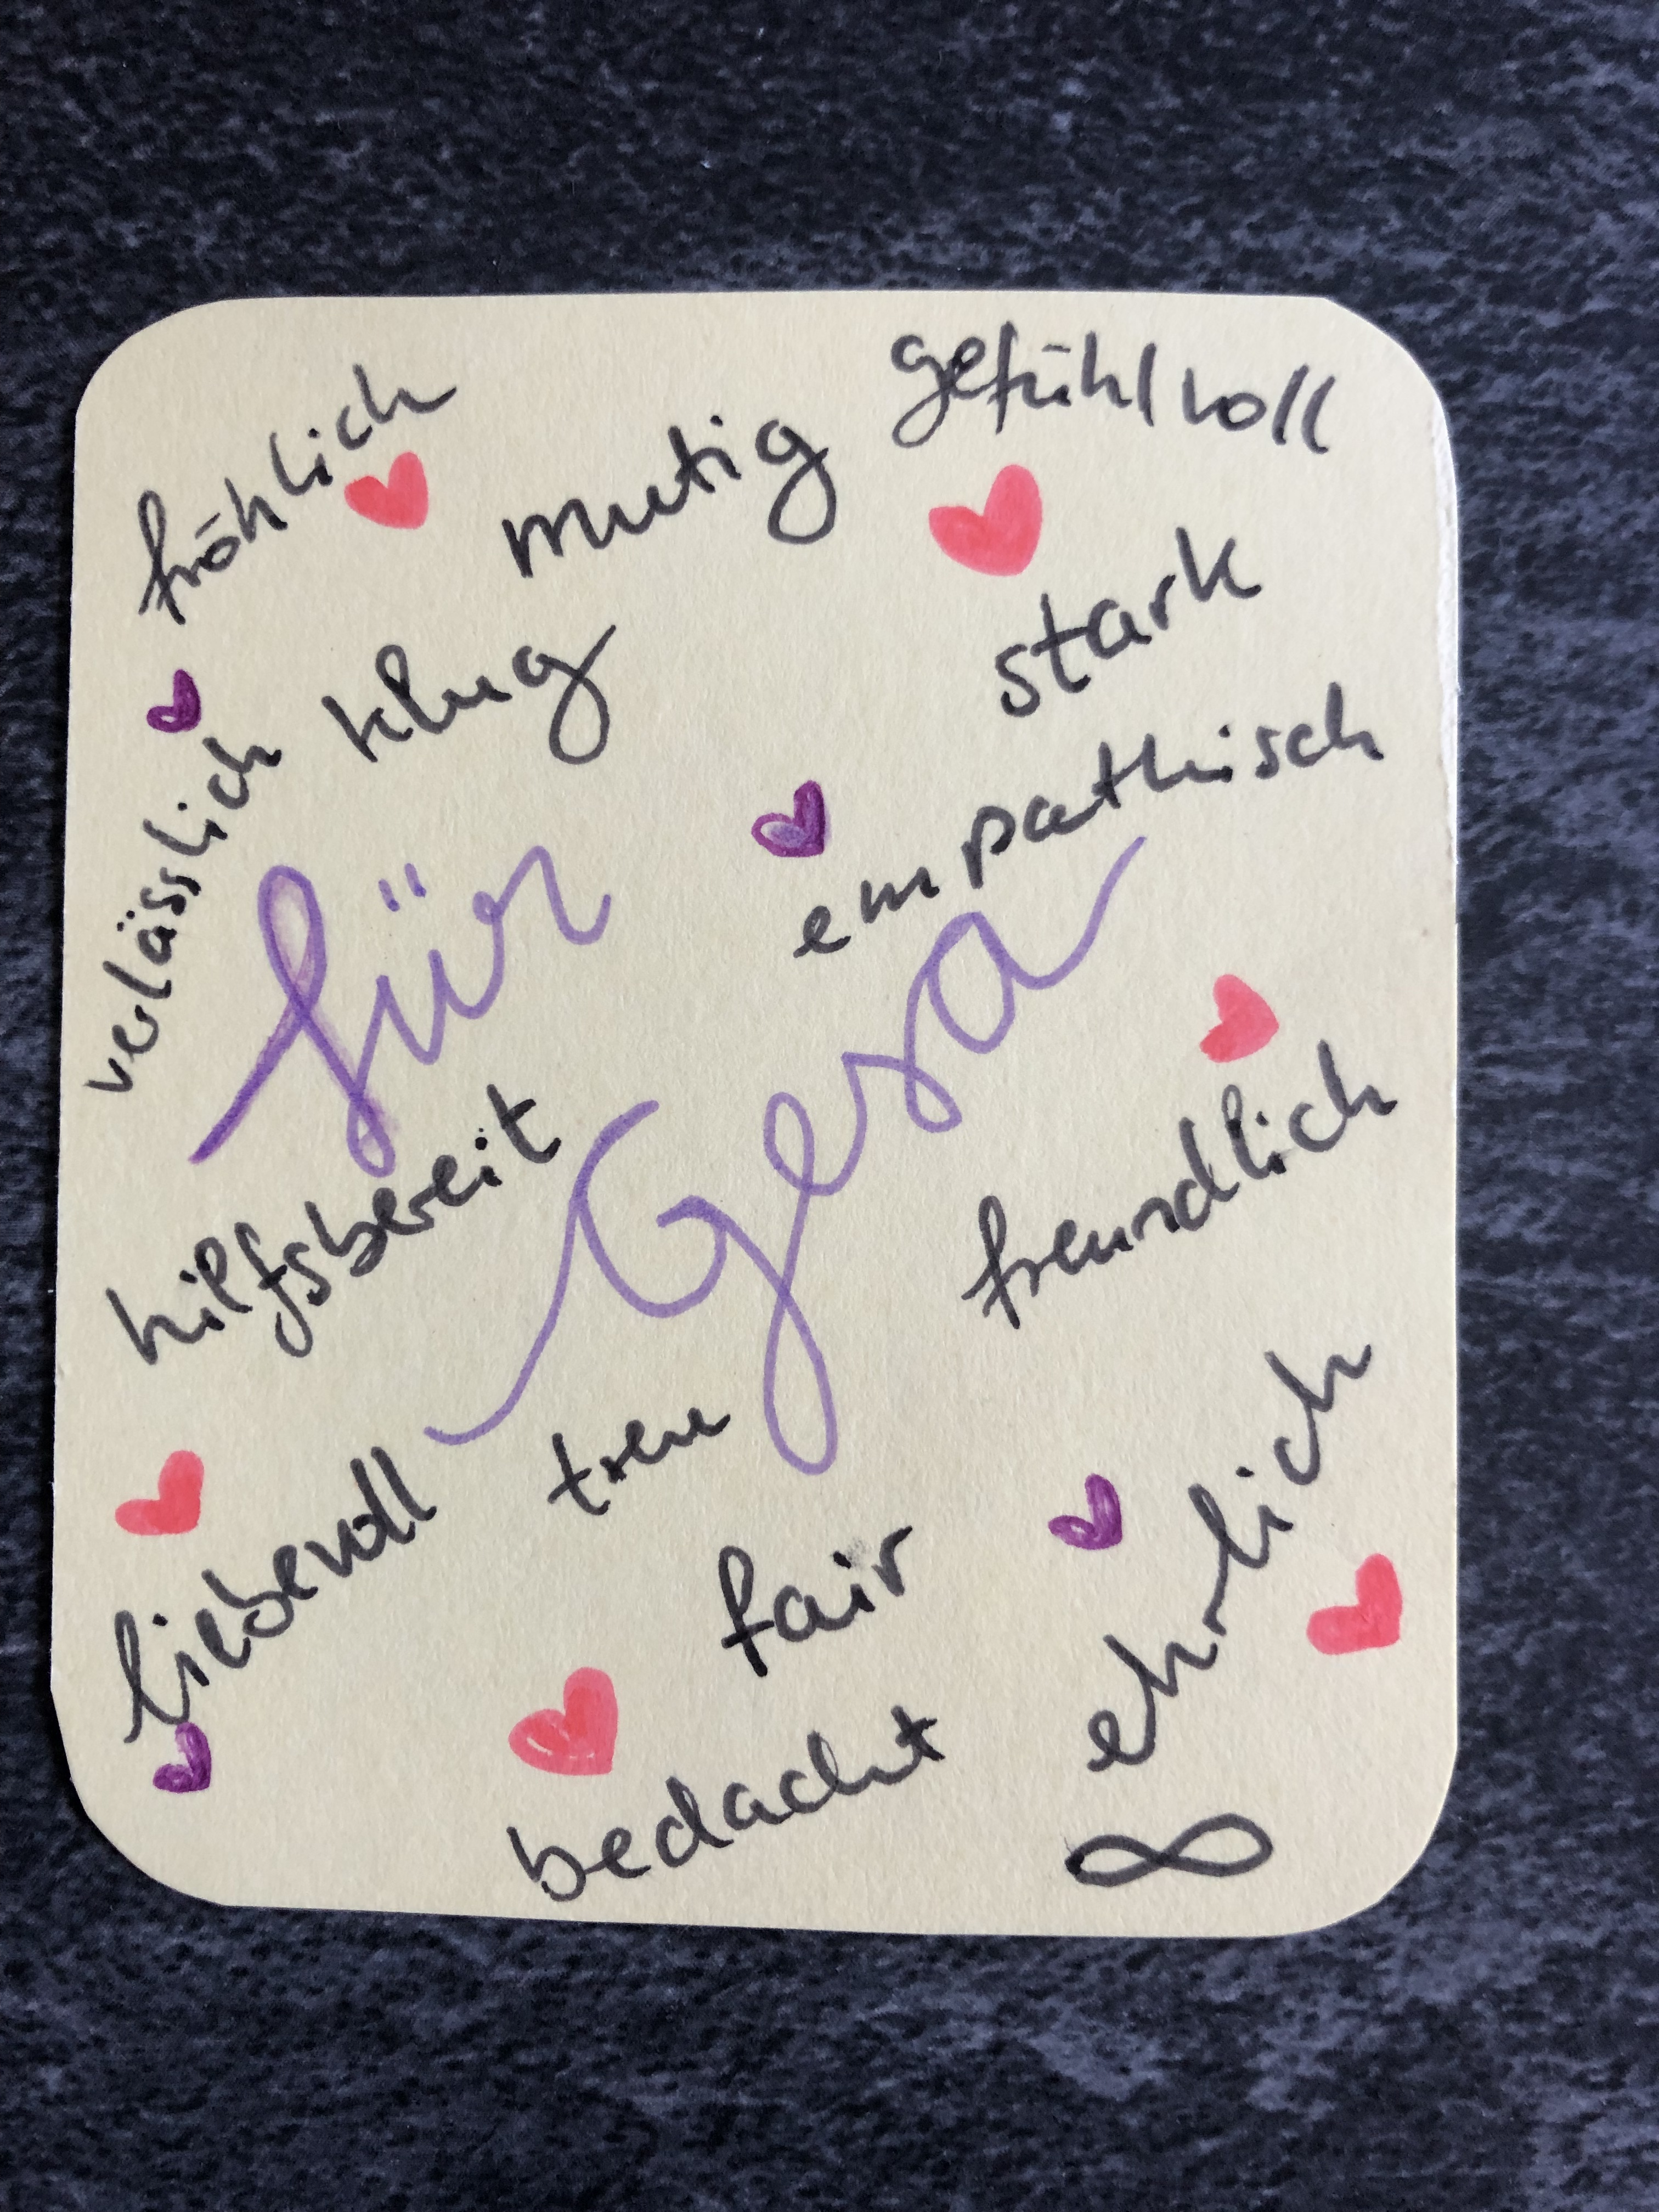 fröhlich
mutig
gefühlvoll
klug
stark
verlässlich
empathisch
für
Gesa
hilfsbereit
freundlich
liebevoll
treu
fair
ehrlich
bedacht
∞